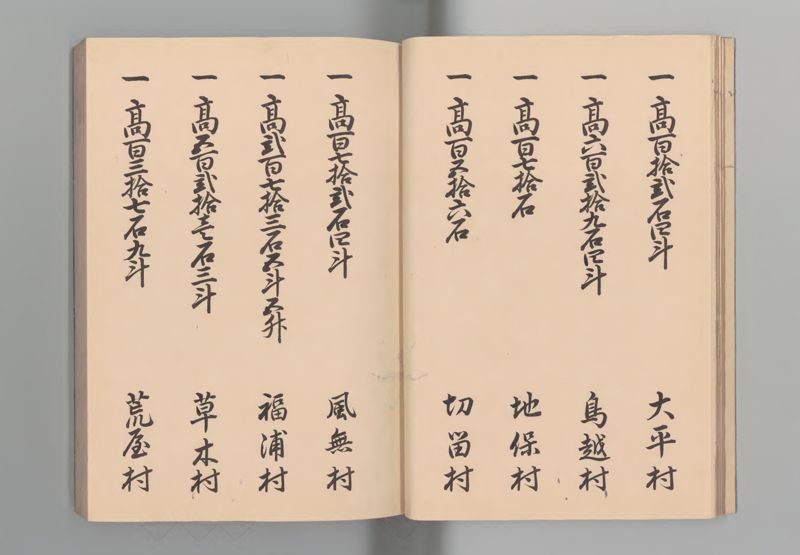 一 高百拾弐石四斗 大平村
一 高六百弐拾九石四斗 鳥越村
一 高百七拾石 地保村
一 高百五拾六石 切留村
一 高百七拾弐石四斗 風無村
一 高弐百七拾三石五斗五升 福浦村
一 高五百弐拾壱石三斗 草木村
一 高百三拾七石九斗 荒屋村